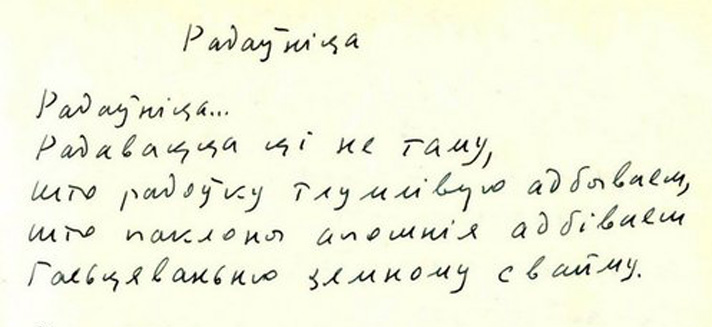 Радаўніца
Радаўніца...
Радавацца ці не таму,
што радоўку тлумлівую адбываем,
што паклоны апошнія адбіваем
Гасьцяваньню зямному свайму.